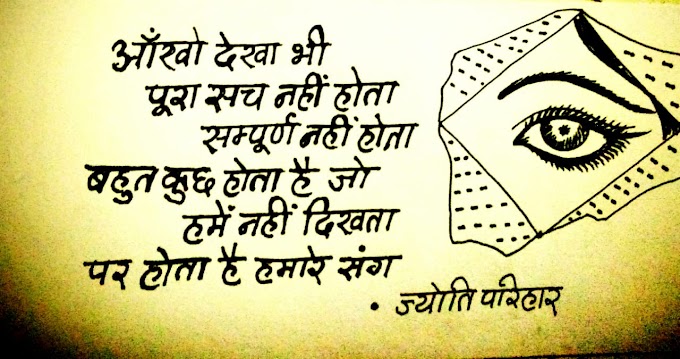 आँखो देखा भी
पूरा सच नहीं होता
सम्पूर्ण नहीं होता
बहुत कुछ होता है जो
हमें नहीं दिखता
पर होता है हमारे संग
• ज्योति परिहार